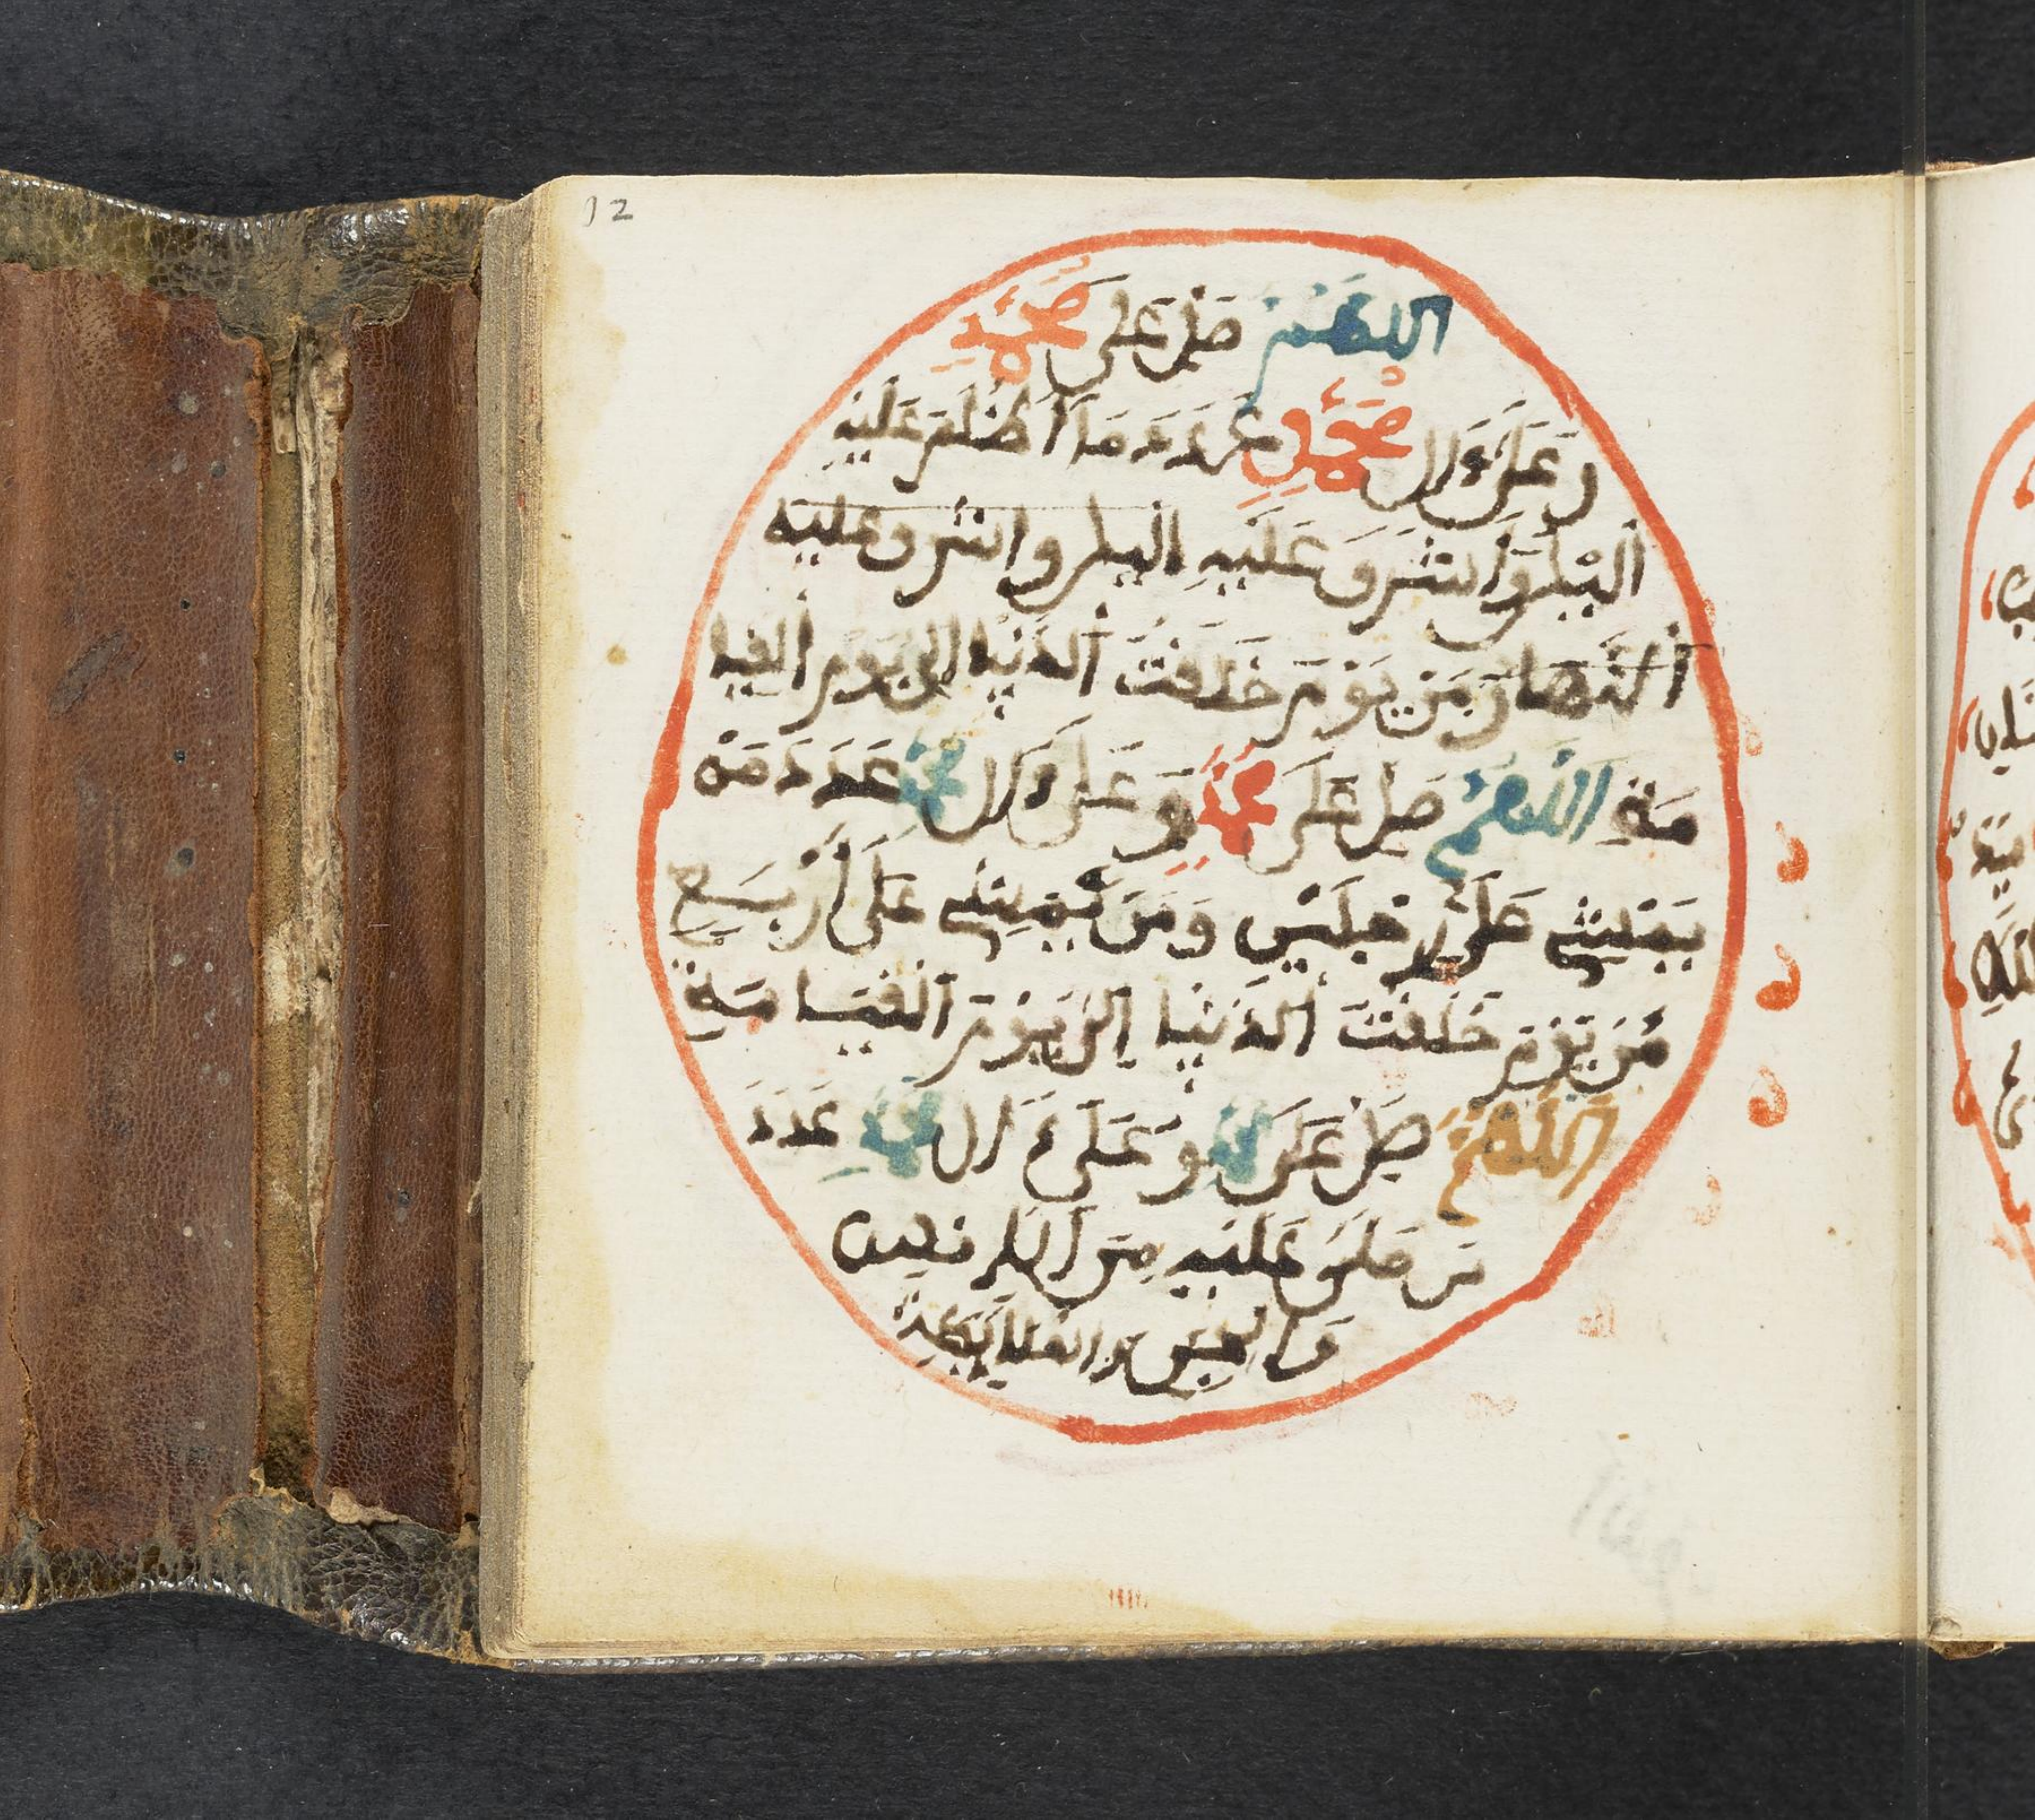 12
اللهم صل على محمد
وعلى ءال محمد عدد ما أظلم عليه
اليل وأشرق عليه اليل واشرق عليه
النهار من يوم خلقت الدنيا الى يوم القيا
مة اللهم صل على محمد وعلى ءال محمد عدد من
يمش على رجلين ومن يمش على أربع
من يوم خلقت الدنيا إلى يوم القيامة
اللهم صل على محمد وعلى ءال محمد عدد
من صلى عليه من
والجن والملايكة